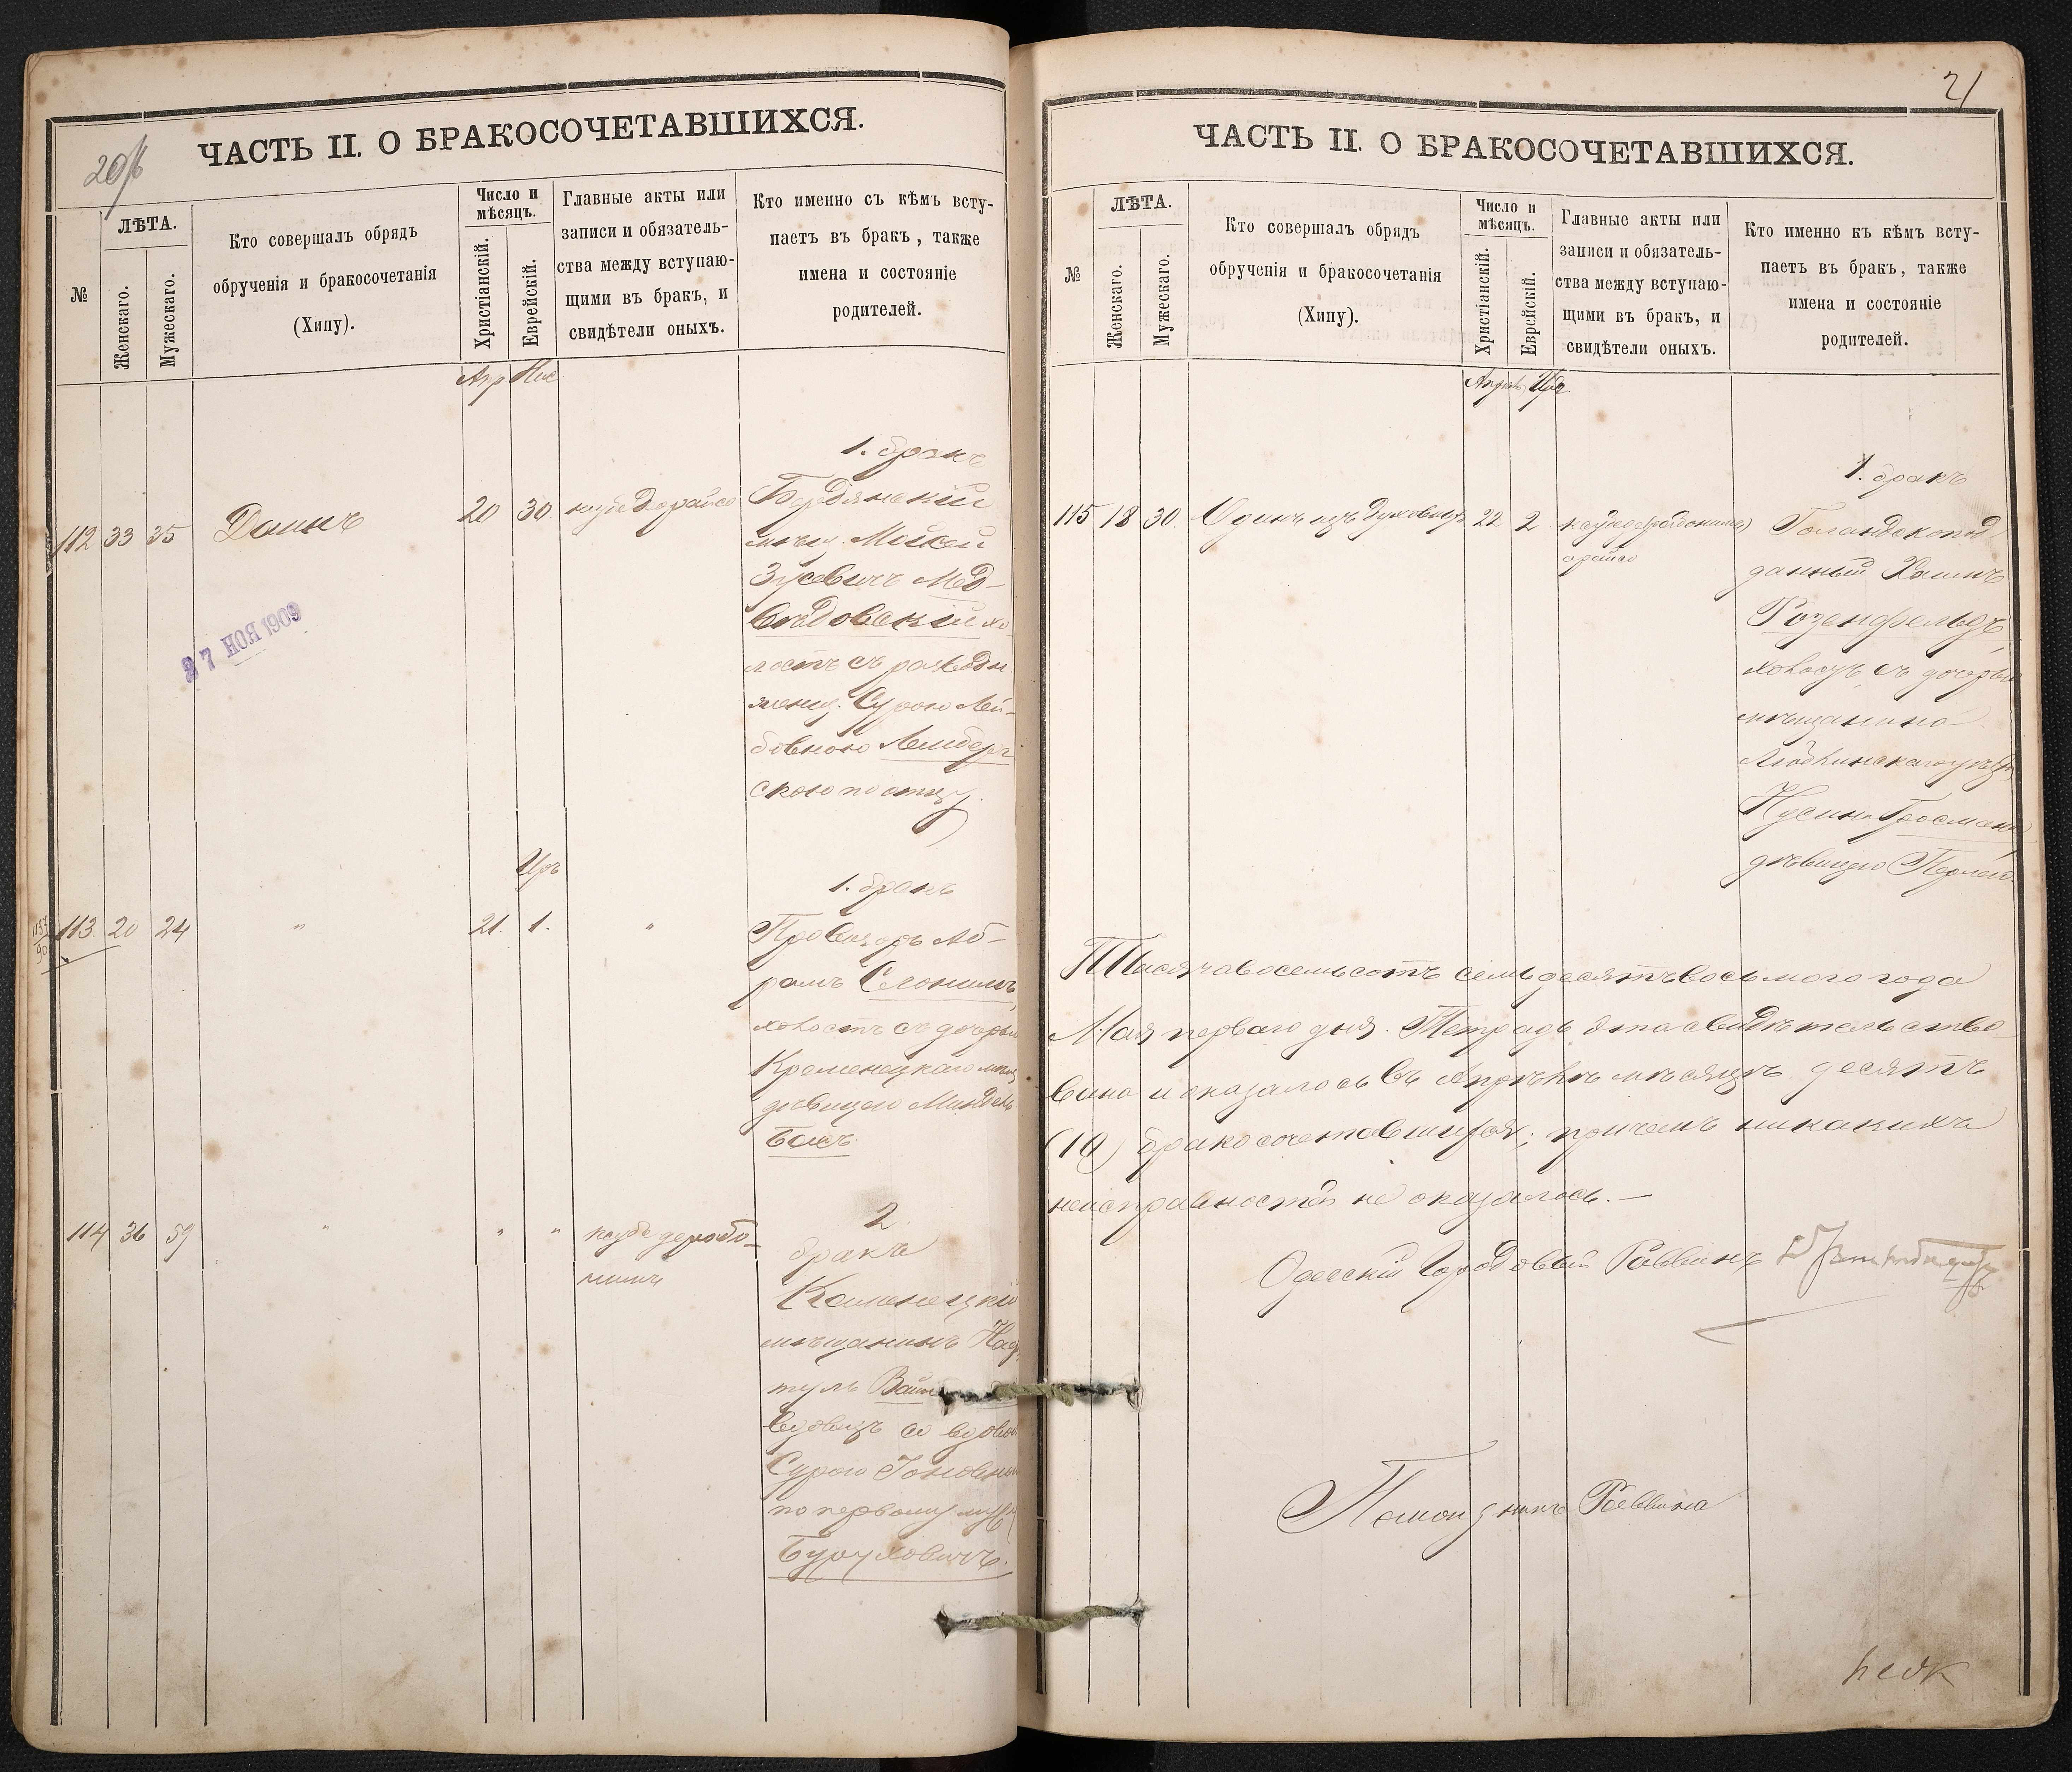 20 об
ЧАСТЬ II. О БРАКОСОЧЕТАВШИХСЯ.
№
ЛѢТА.
Женскаго.
Мужескаго.
Кто совершалъ обрядъ
обрученія и бракосочетанія
(Хипу).
Число и
мѣсяцъ.
Христіанскій.
Еврейскій.
Главные акты или
записи и обязатель-
ства между вступаю-
щими въ бракъ, и
свидѣтели оныхъ.
Кто именно съ кѣмъ всту-
паетъ въ бракъ, также
имена и состояніе
родителей.
Апр Нис
1. бракъ
112 33 35 Даинъ 20 30
Бердянскій
мѣщ. Мойсей
Зусевичъ Мед-
вѣдовскій хо-
лостъ съ разводн.
женщ. Сурою Лей-
бовною Лемберг
скою по отцу.
27 НОЯ 1909
Иръ
1. бракъ
113. 20 24 " 21. 1. "
Провизоръ Аб-
рамъ Слонимъ,
холостъ съ дочерью
Кременецкаго мѣщ
дѣвицею Миндель
Баксъ.
114 36 59 " " "
2
бракъ
Каменецкій
мѣщанинъ Наф
туль Вайн
вдовецъ со вдовою
Сурою
по первому мужу
Буруховичъ.
21
ЧАСТЬ II. О БРАКОСОЧЕТАВШИХСЯ.
№
ЛѢТА.
Женскаго.
Мужескаго.
Кто совершалъ обрядъ
обрученія и бракосочетанія
(Хипу).
Число и
мѣсяцъ.
Христіанскій.
Еврейскій.
Главные акты или
записи и обязатель-
ства между вступаю-
щими въ бракъ, и
свидѣтели оныхъ.
Кто именно къ кѣмъ всту-
паетъ въ бракъ, также
имена и состояніе
родителей.
Апрѣль Иръ
1. бракъ
115 18 30 Одинъ изъ духовныхъ 22 2
Голандскопод
данный Хаимъ
Розенфельдъ,
холостъ съ дочерью
мѣщанина
Нусина Гросмана
дѣвицею Перлею.
Тысяча восемьсотъ семьдесятъ восьмого года
Мая перваго дня. Тетрадь эта свидѣтельство-
вана и оказалось въ Апрѣлѣ мѣсяцѣ десять
(10) бракосочетавшихся; причемъ никакихъ
неисправностей не оказалось. —
Одесскій Городовый Раввинъ
Помощникъ Раввина